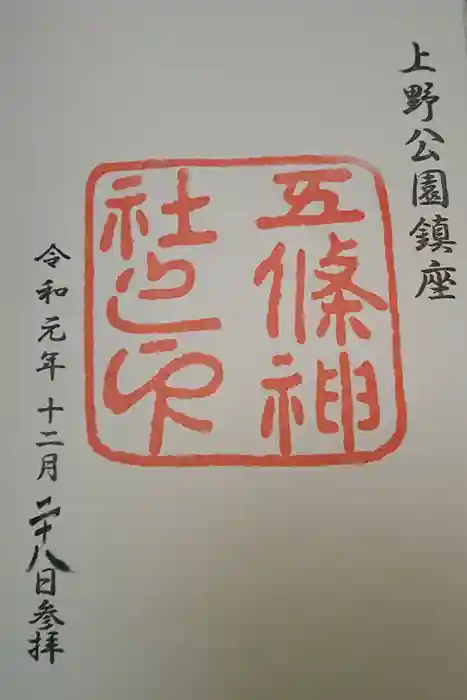 上野公園鎮座
五條神
社之印
令和元年十二月二十八日参拝